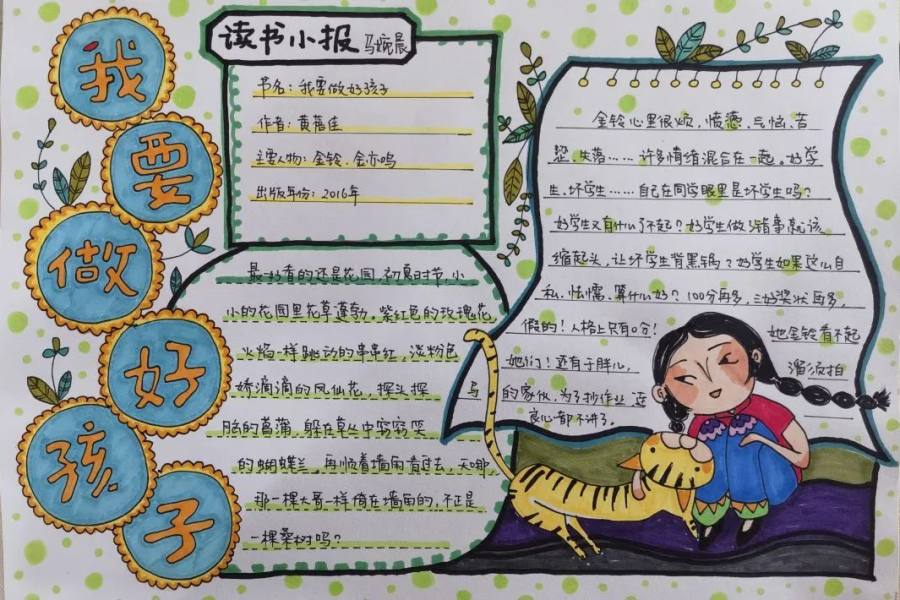 我
要
做
好
孩
子
读书小报
马婉晨
书名：我要做好孩子
作者：黄蓓佳
主要人物：金铃、金亦鸣
出版年份：2016年
最好看的还是花园，初夏时节，小
小的花园里花草蓬勃。紫红色的玫瑰花
火焰一样跳动的串串红，淡粉色
娇滴滴的凤仙花，探头探
脑的菖蒲，躲在草丛中窃窃笑
的蝴蝶兰，再顺着墙角看过去，天哪
那一棵大哥一样倚在墙角的，不正是
一棵桑树吗？
金铃心里很烦，愤懑、气恼、苦
涩、失落……许多情绪混合在一起。好学
生、坏学生……自己在同学眼里是坏学生吗？
好学生又有什么了不起？好学生做了错事就该
缩起头，让坏学生背黑锅？好学生如果这么自
私、怯懦，算什么好？100分再多，三好奖状再多，
假的！人格上只有0分！ 她金铃看不起
她们！还有于胖儿，溜须拍
马的家伙，为了抄作业连
良心都不讲了。